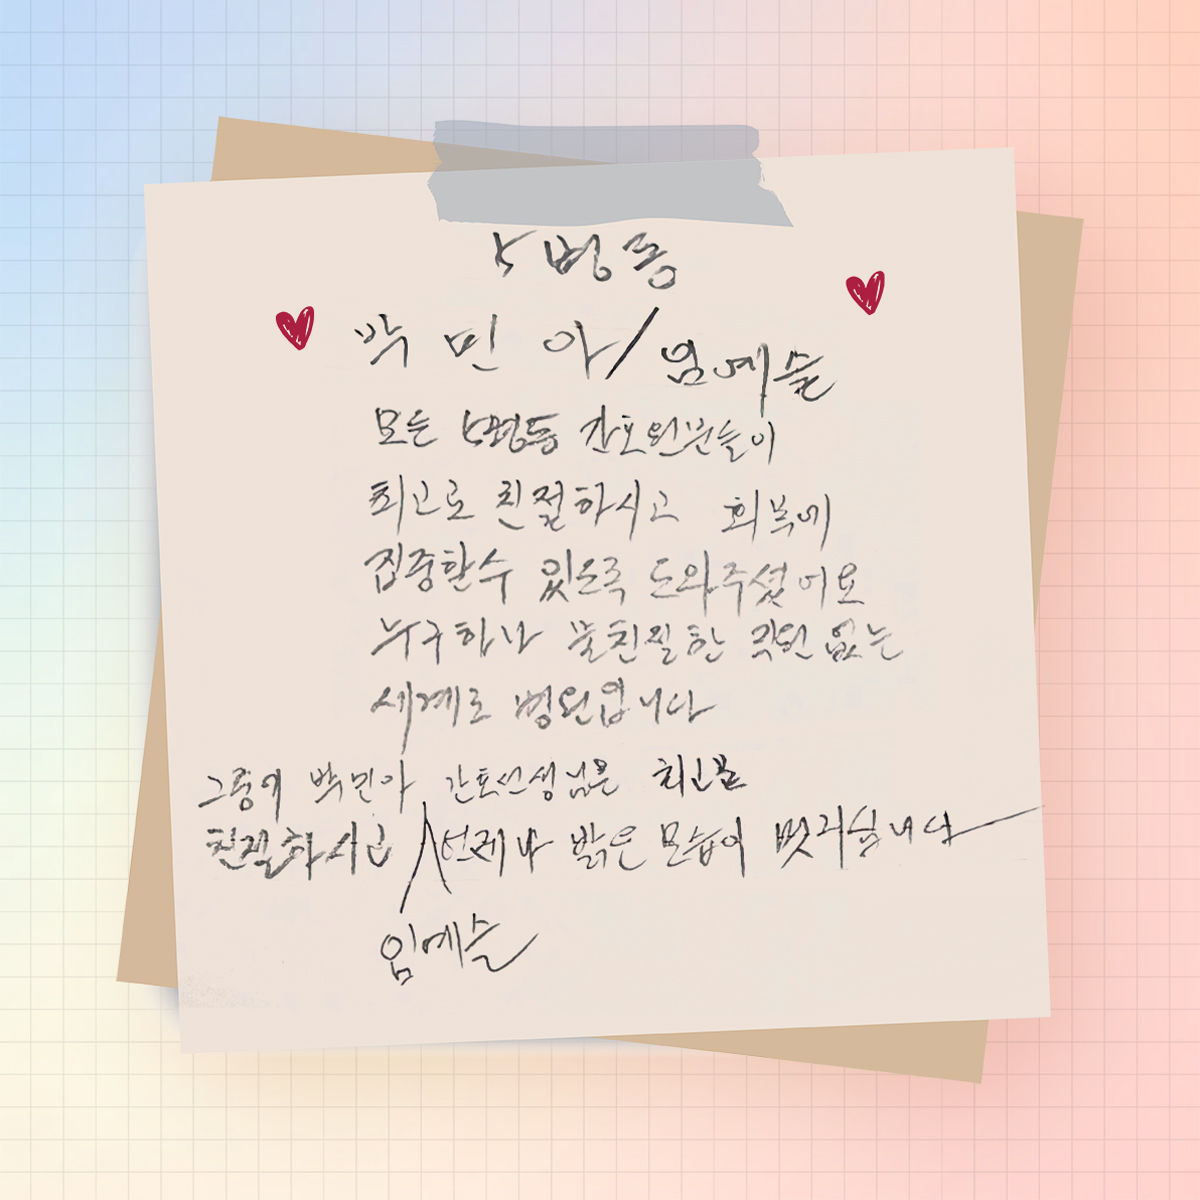 5병동
박민아/임예슬
모든 5병동 간호원분들이
최고로 친절하시고 회복에
집중할수 있도록 도와주셨어요
누구하나 불친절한 직원없는
세계로 병원입니다
그중에 박민아 간호선생님은 최고로
친절하시고 언제나 밝은 모습이 멋지십니다
임예슬